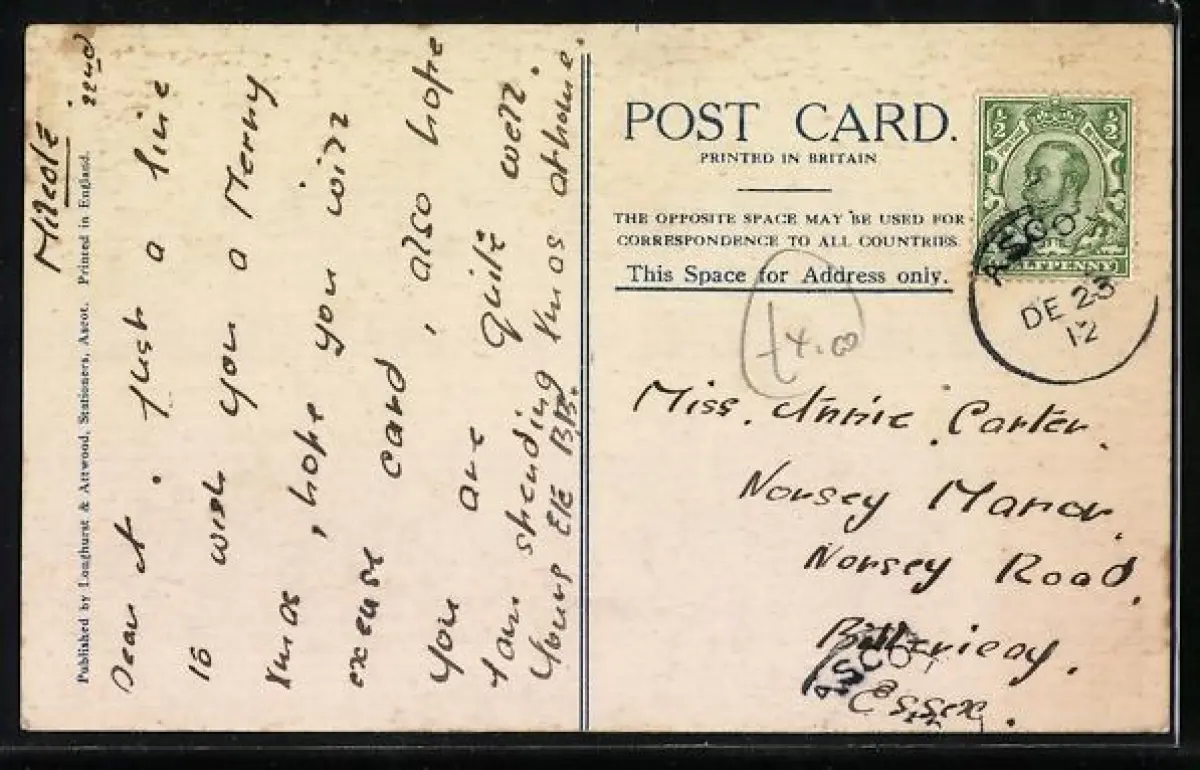 22nd
Dear A. Just a line
to wish you a Merry
Xmas, hope you will
excuse card, also hope
you are quite well.
I am spending Xmas at home.
Yours Etc BB.
Published by Longhurst & Attwood, Stationers, Ascot. Printed in England.
POST CARD.
PRINTED IN BRITAIN
THE OPPOSITE SPACE MAY BE USED FOR
CORRESPONDENCE TO ALL COUNTRIES.
This Space for Address only.
£4.00
½ ½
HALFPENNY
ASCOT
DE 23
12
Miss. Annie Carter.
Norsey Manor,
Norsey Road,
Billericay.
Essex.
ASCOT